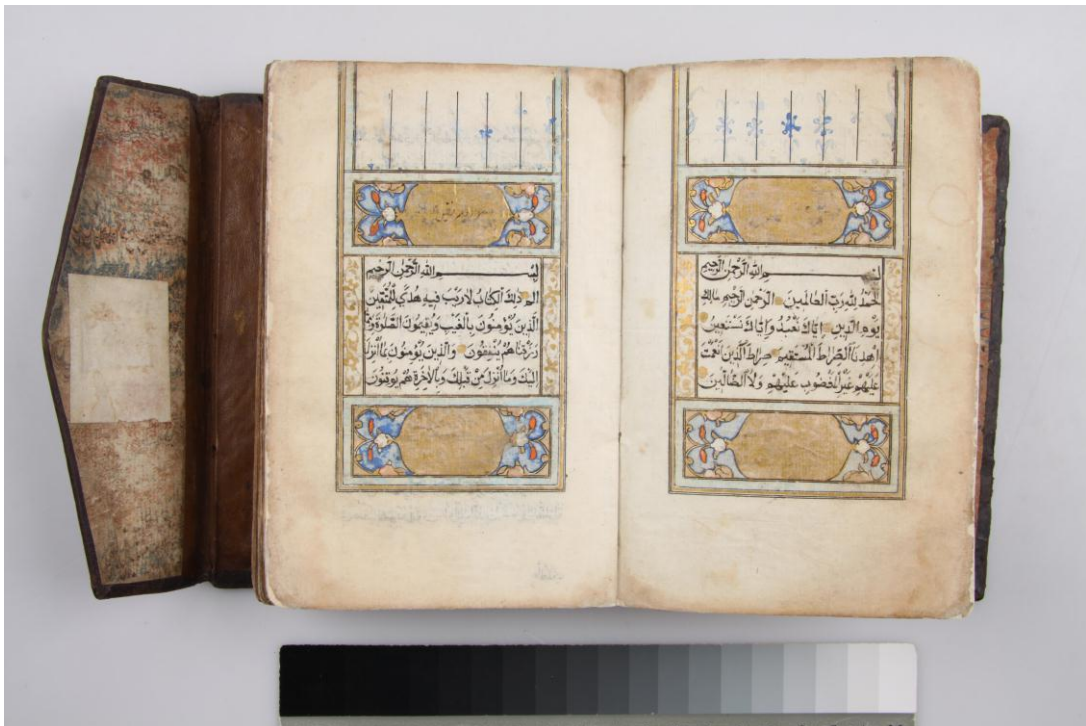 بِسْمِ اللهِ الرَّحْمٰنِ الرَّحِيمِ
الْحَمْدُ لِلّٰهِ رَبِّ الْعَالَمِينَ الرَّحْمٰنِ الرَّحِيمِ مَالِكِ
يَوْمِ الدِّينِ إِيَّاكَ نَعْبُدُ وَإِيَّاكَ نَسْتَعِينُ
اهْدِنَا الصِّرَاطَ الْمُسْتَقِيمَ صِرَاطَ الَّذِينَ أَنْعَمْتَ
عَلَيْهِمْ غَيْرِ الْمَغْضُوبِ عَلَيْهِمْ وَلَا الضَّالِّينَ
بِسْمِ اللهِ الرَّحْمٰنِ الرَّحِيمِ
الم ذٰلِكَ الْكِتَابُ لَا رَيْبَ فِيهِ هُدًى لِلْمُتَّقِينَ
الَّذِينَ يُؤْمِنُونَ بِالْغَيْبِ وَيُقِيمُونَ الصَّلٰوةَ وَمِمَّا
رَزَقْنَاهُمْ يُنْفِقُونَ وَالَّذِينَ يُؤْمِنُونَ بِمَا أُنْزِلَ
إِلَيْكَ وَمَا أُنْزِلَ مِنْ قَبْلِكَ وَبِالْآخِرَةِ هُمْ يُوقِنُونَ